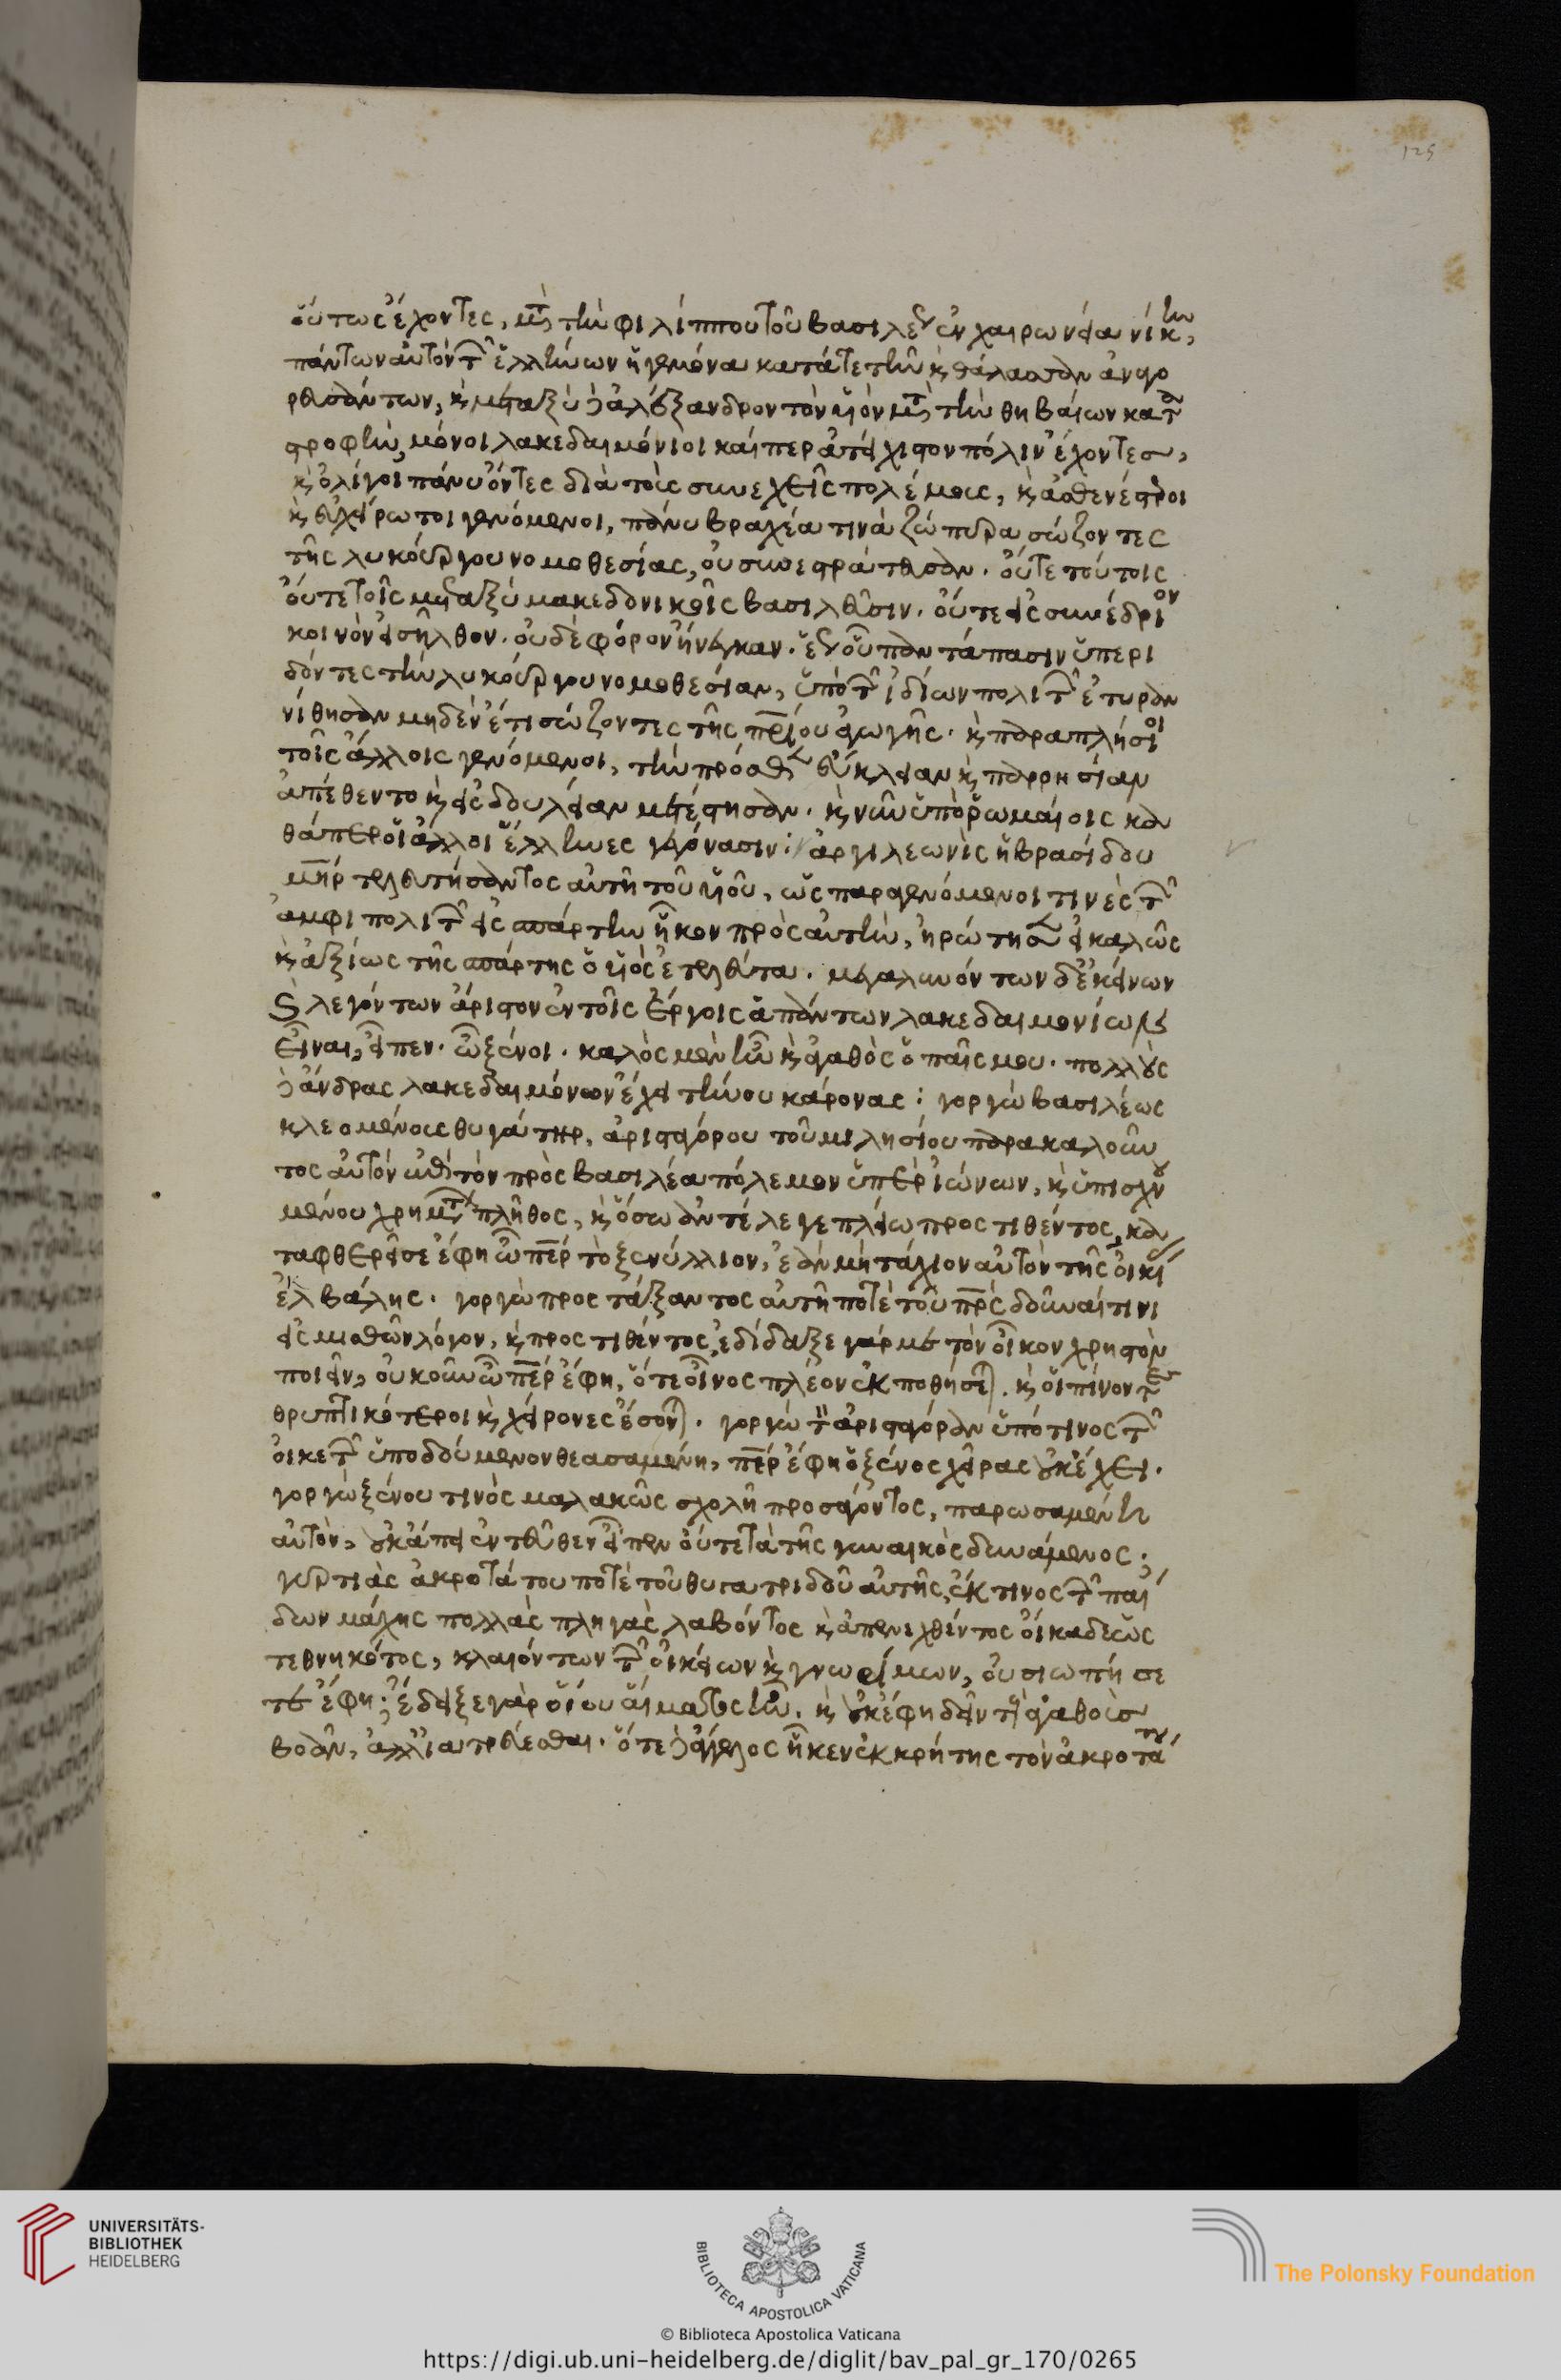 125
οὕτως ἔχοντες, μτ̀ τὴν φιλίππου τοῦ βασιλέως ἐν χαιρωνείᾳ νίκην,
πάντων αὐτὸν τῶν ἑλλήνων ἡγεμόνα κατά τε γῆν κ̀ θάλασσαν ἀναγο
ρευσάντων, κ̀ μεταξὺ δὲ ἀλέξανδρον τὸν υἱὸν μτ̀ τὴν θηβαίων κατα
στροφὴν, μόνοι λακεδαιμόνιοι καίπερ ἀτείχιστον πόλιν ἔχοντες,
κ̀ ὀλίγοι πάνυ ὄντες διὰ τοὺς συνεχεῖς πολέμους, κ̀ ἀσθενέστεροι
κ̀ εὐχείρωτοι γενόμενοι, πάνυ βραχέα τινὰ ζώπυρα σώζοντες
τῆς λυκούργου νομοθεσίας, οὐ συνεστράτευσαν. οὔτε τούτοις
οὔτε τοῖς μεταξὺ μακεδονικοῖς βασιλεῦσιν. οὔτε εἰς συνέδριον
κοινὸν εἰσῆλθον. οὐδὲ φόρον ἤνεγκαν. ἕως οὗ παντάπασιν ὑπερι
δόντες τὴν λυκούργου νομοθεσίαν, ὑπὸ τῶν ἰδίων πολιτῶν ἐτυραν
νήθησαν μηδὲν ἔτι σώζοντες τῆς πρίου ἀγωγῆς. κ̀ παραπλήσιοι
τοῖς ἄλλοις γενόμενοι, τὴν πρόσθεν εὔκλειαν κ̀ παρρησίαν
ἀπέθεντο κ̀ εἰς δουλείαν μετέστησαν. κ̀ νῦν ὑπὸ ῥωμαίοις κα
θάπερ οἱ ἄλλοι ἕλληνες γεγόνασιν: ἀργιλεωνὶς ἡ βρασίδου
μηρ τελευτήσαντος αὐτῇ τοῦ υἱοῦ, ὡς παραγενόμενοι τινὲς τῶν
ἀμφιπολιτῶν εἰς σπάρτην ἧκον πρὸς αὐτὴν, ἠρώτησεν εἰ καλῶς
κ̀ ἀξίως τῆς σπάρτης ὁ υἱὸς ἐτελεύτα. μεγαλυνόντων δ' ἐκείνων
κ̀ λεγόντων ἄριστον ἐν τοῖς ἔργοις ἁπάντων λακεδαιμονίων
εἶναι, εἶπεν. ὦ ξένοι. καλὸς μὲν ἦν κ̀ ἀγαθὸς ὁ παῖς μου. πολλοὺς
δὲ ἄνδρας λακεδαιμόνων ἔχει τήνου κάρονας: γοργὼ βασιλέως
κλεομένους θυγάτηρ, ἀρισταγόρου τοῦ μιλησίου παρακαλοῦν
τος αὐτὸν ἐπὶ τὸν πρὸς βασιλέα πόλεμον ὑπὲρ ἰώνων, κ̀ ὑπισχνου
μένου χρημάτων πλῆθος, κ̀ ὅσω ἀντέλεγε πλείω προστιθέντος, κα
ταφθερεῖ σε ἔφη ὦ περ τὸ ξενύλλιον, ἐὰν μὴ τάχιον αὐτὸν τῆς οἰκίας
ἐκβάλῃς. γοργὼ προστάξαντος αὐτῇ ποτὲ τοῦ πρς δοῦναί τινι
εἰς μισθὸν λόγον, κ̀ προστιθέντος, ἐδίδαξε γάρ με τὸν οἶνον χρηστὸν
ποιεῖν, οὐκοῦν ὦ πέρ ἔφη, ὅτε οἶνος πλέον ἐκποθήσεται. κ̀ οἱ πίνοντες
θρυπτικώτεροι κ̀ χείρονες ἔσονται. γοργὼ τὸν ἀρισταγόραν ὑπό τινος τῶν
οἰκετῶν ὑποδούμενον θεασαμένη, πέρ ἔφη ὁ ξένος χεῖρας οὐκ ἔχει.
γοργὼ ξένου τινὸς μαλακῶς σχολῇ προσάγοντος, παρωσαμένη
αὐτὸν, οὐκ ἄπει ἐντεῦθεν εἶπεν οὔτε τὰ τῆς γυναικὸς δυνάμενος;
γυρτιὰς ἀκροτάτου ποτὲ τοῦ θυγατριδοῦ αὐτῆς, ἔκ τινος τῶν παί
δων μάχης πολλὰς πληγὰς λαβόντος κ̀ ἀπενεχθέντος οἴκαδε ὡς
τεθνηκότος, κλαιόντων τῶν οἰκείων κ̀ γνωρίμων, οὐ σιωπήσε
τε ἔφη; ἔδειξε γὰρ οἵου αἵματος ἦν. κ̀ οὐκ ἔφη δεῖν τοὺς ἀγαθοὺς
βοᾶν, ἀλλ' ἰατρεύεσθαι. ὅτε δὲ ἄγγελος ἧκεν ἐκ κρήτης τὸν ἀκροτάτου
UNIVERSITÄTS-
BIBLIOTHEK
HEIDELBERG
BIBLIOTECA APOSTOLICA VATICANA
The Polonsky Foundation
© Biblioteca Apostolica Vaticana
https://digi.ub.uni-heidelberg.de/diglit/bav_pal_gr_170/0265